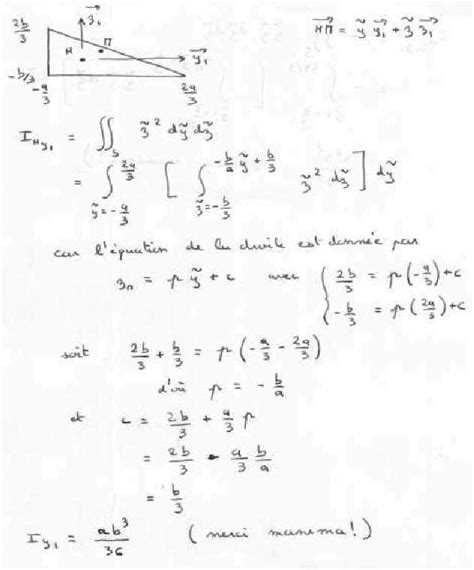 2b/3
z₁→
H M
y₁→
-b/3
-a/3
2a/3
HM→ = ỹ y₁→ + z̃ z₁→
I_Hy₁ = ∬_S z̃² dỹ dz̃
= ∫_{ỹ=-a/3}^{2a/3} [ ∫_{z̃=-b/3}^{-b/a ỹ + b/3} z̃² dz̃ ] dỹ
car l'équation de la droite est donnée par
= p ỹ + c avec { 2b/3 = p(-a/3) + c
-b/3 = p(2a/3) + c
soit 2b/3 + b/3 = p(-a/3 - 2a/3)
d'où p = -b/a
et c = 2b/3 + a/3 p
= 2b/3 - a/3 b/a
= b/3
I_y₁ = ab³/36 (merci munema!)